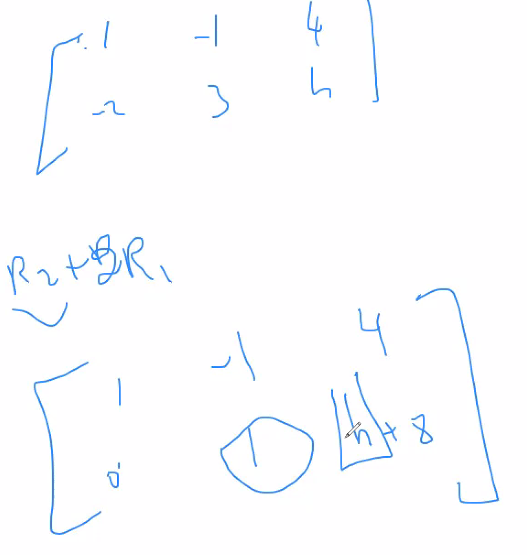 1 -1 4
-2 3 h
R2 + 2R1
1 -1 4
0 1 h + 8